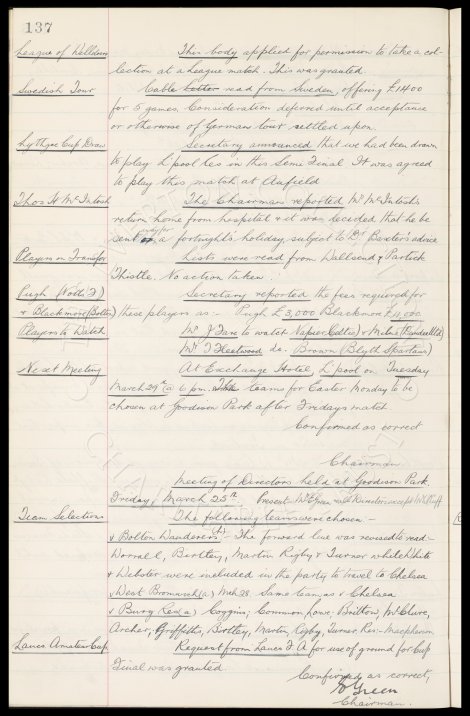 137
League of Welldoers This body applied for permission to take a col-
lection at a League match. This was granted.
Swedish Tour Cable letter read from Sweden, offering £1400
for 5 games. Consideration deferred until acceptance
or otherwise of German tour settled upon.
Lythgoe Cup Draw Secretary announced that we had been drawn
to play L'pool Res in this Semi Final. It was agreed
to play this match at Anfield
Thos H McIntosh The Chairman reported Mr McIntosh's
return home from hospital & it was decided that he be
sent away for a fortnight's holiday, subject to Dr Baxter's advice
Players on Transfer Lists were read from Wallsend & Partick
Thistle. No action taken.
Pugh (Notts F) Secretary reported the fees required for
& Blackmore (Bolton) these players as :- Pugh £3,000 Blackmore £4,000
Players to Watch Mr J Fare to watch Napier (Celtic) &
Mr T Fleetwood do. Brown (Blyth Spartans)
Next Meeting At Exchange Hotel, L'pool on Tuesday
March 29th @ 6 pm. The teams for Easter Monday to be
chosen at Goodison Park after Fridays match
Confirmed as correct
Chairman.
Meeting of Directors held at Goodison Park.
Friday, March 25th. Present Mr Green and Directors except Mr Cuff
Team Selections The following teams were chosen :-
v Bolton Wanderers (h) - The forward line was revised to read -
Worrall, Bentley, Martin Rigby & Turner while White
& Webster were included in the party to travel to Chelsea
v West Bromwich (a) Mch 28. Same team as v Chelsea
v Bury Res (a) Coggins; Common, Lowe; Britton, McClure,
Archer; Griffiths, Bentley, Martin, Rigby, Turner Res:- Macpherson
Lancs Amateur Cup Request from Lancs F.A. for use of ground for Cup
Final was granted.
Confirmed as correct,
W Green
Chairman.